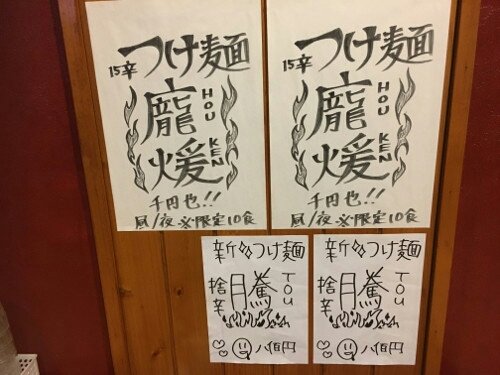 15辛 つけ麺
龐煖
HOU KEN
千円也!!
昼/夜 ※限定10食
15辛 つけ麺
龐煖
HOU KEN
千円也!!
昼/夜 ※限定10食
新つけ麺
捨辛
騰
TOU
八百円
新つけ麺
捨辛
騰
TOU
八百円